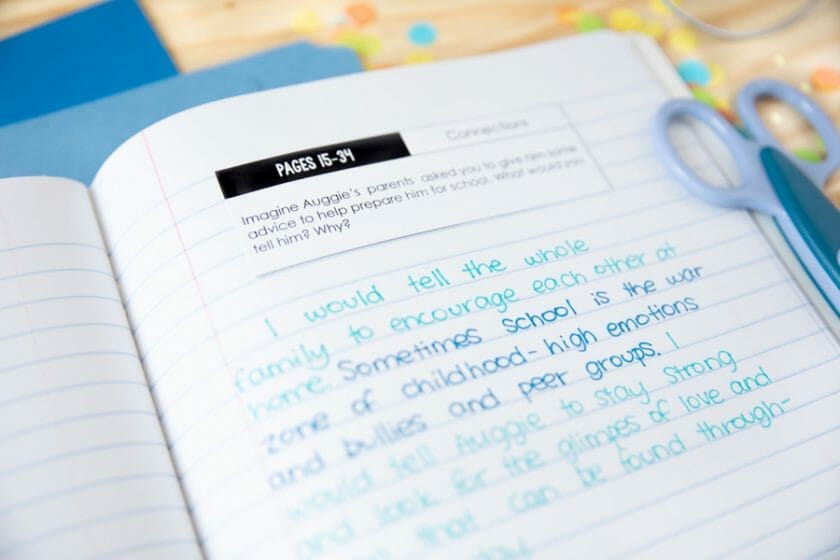 PAGES 15-34
Connections
Imagine Auggie's parents asked you to give him some
advice to help prepare him for school. What would you
tell him? Why?
I would tell the whole
family to encourage each other at
home. Sometimes school is the war
zone of childhood- high emotions
and bullies and peer groups. I
would tell Auggie to stay strong
and look for the glimpes of love and
that can be found through-
day